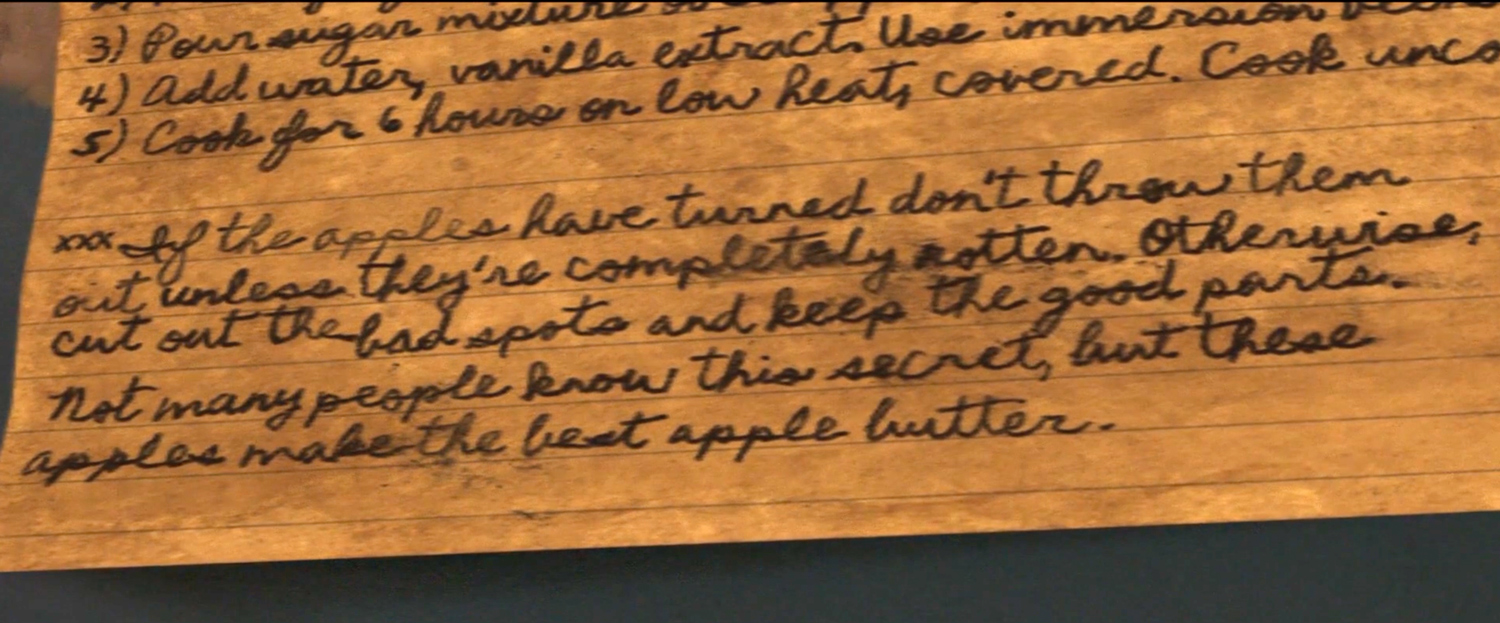 3) Pour sugar mixture
4) Add water, vanilla extract. Use immersion
5) Cook for 6 hours on low heat, covered. Cook
xxx If the apples have turned don't throw them
out unless they're completely rotten. Otherwise,
cut out the bad spots and keep the good parts.
Not many people know this secret, but these
apples make the best apple butter.